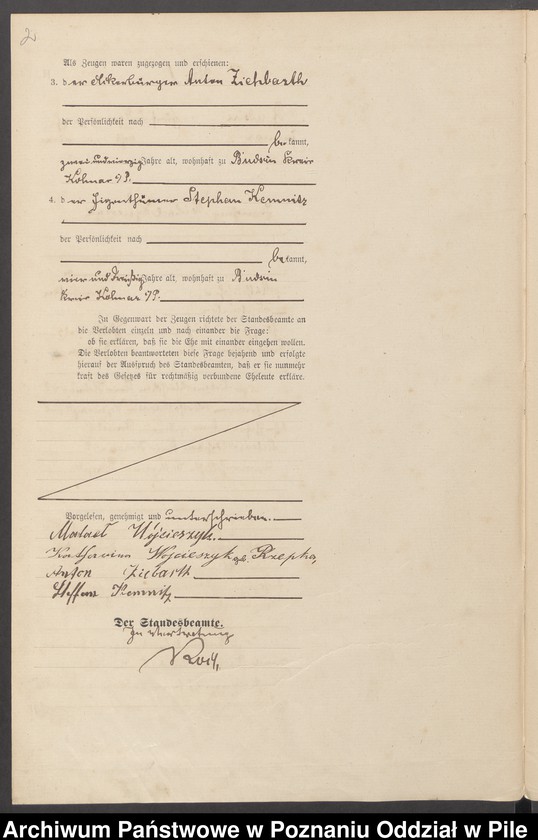 2
Als Zeugen waren zugezogen und erschienen:
3. der Ackerbürger Anton Ziehbarth
der Persönlichkeit nach
bekannt,
zwei und vierzig Jahre alt, wohnhaft zu Budsin Kreis
Kolmar i/P.
4. der Eigenthümer Stephan Kemnitz
der Persönlichkeit nach
bekannt,
vier und dreißig Jahre alt, wohnhaft zu Budsin
Kreis Kolmar i/P.
In Gegenwart der Zeugen richtete der Standesbeamte an
die Verlobten einzeln und nach einander die Frage:
ob sie erklären, daß sie die Ehe mit einander eingehen wollen.
Die Verlobten beantworteten diese Frage bejahend und erfolgte
hierauf der Ausspruch des Standesbeamten, daß er sie nunmehr
kraft des Gesetzes für rechtmäßig verbundene Eheleute erkläre.
Vorgelesen, genehmigt und unterschrieben.
Wójcieszyk.
Katharina Wojcieszyk geb. Rzepka,
Anton Ziebarth
Steffan Kemnitz
Der Standesbeamte.
In Vertretung
Archiwum Państwowe w Poznaniu Oddział w Pile